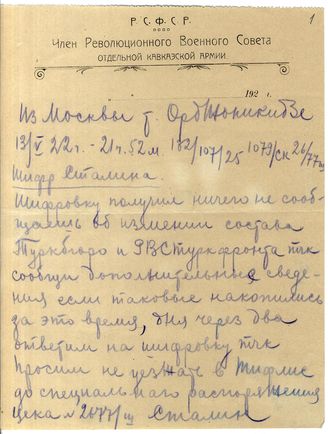 1
Р. С. Ф. С. Р.
Член Революционного Военного Совета
ОТДЕЛЬНОЙ КАВКАЗСКОЙ АРМИИ.
192 г.
Из Москвы т. Орджоникидзе
13/V 22 г. - 21 ч. 52 м. 132/107/25 1079/ск 26/77ш
Шифр Сталина.
Шифровку получил ничего не сооб-
щаешь об изменении состава
Туркбюро и РВСтуркфронта тчк
сообщи дополнительные сведе-
ния если таковые накопились
за это время, дня через два
ответим на шифровку тчк
Просим не уезжать в Тифлис
до специального распоряжения
цека № 2677/ш Сталин